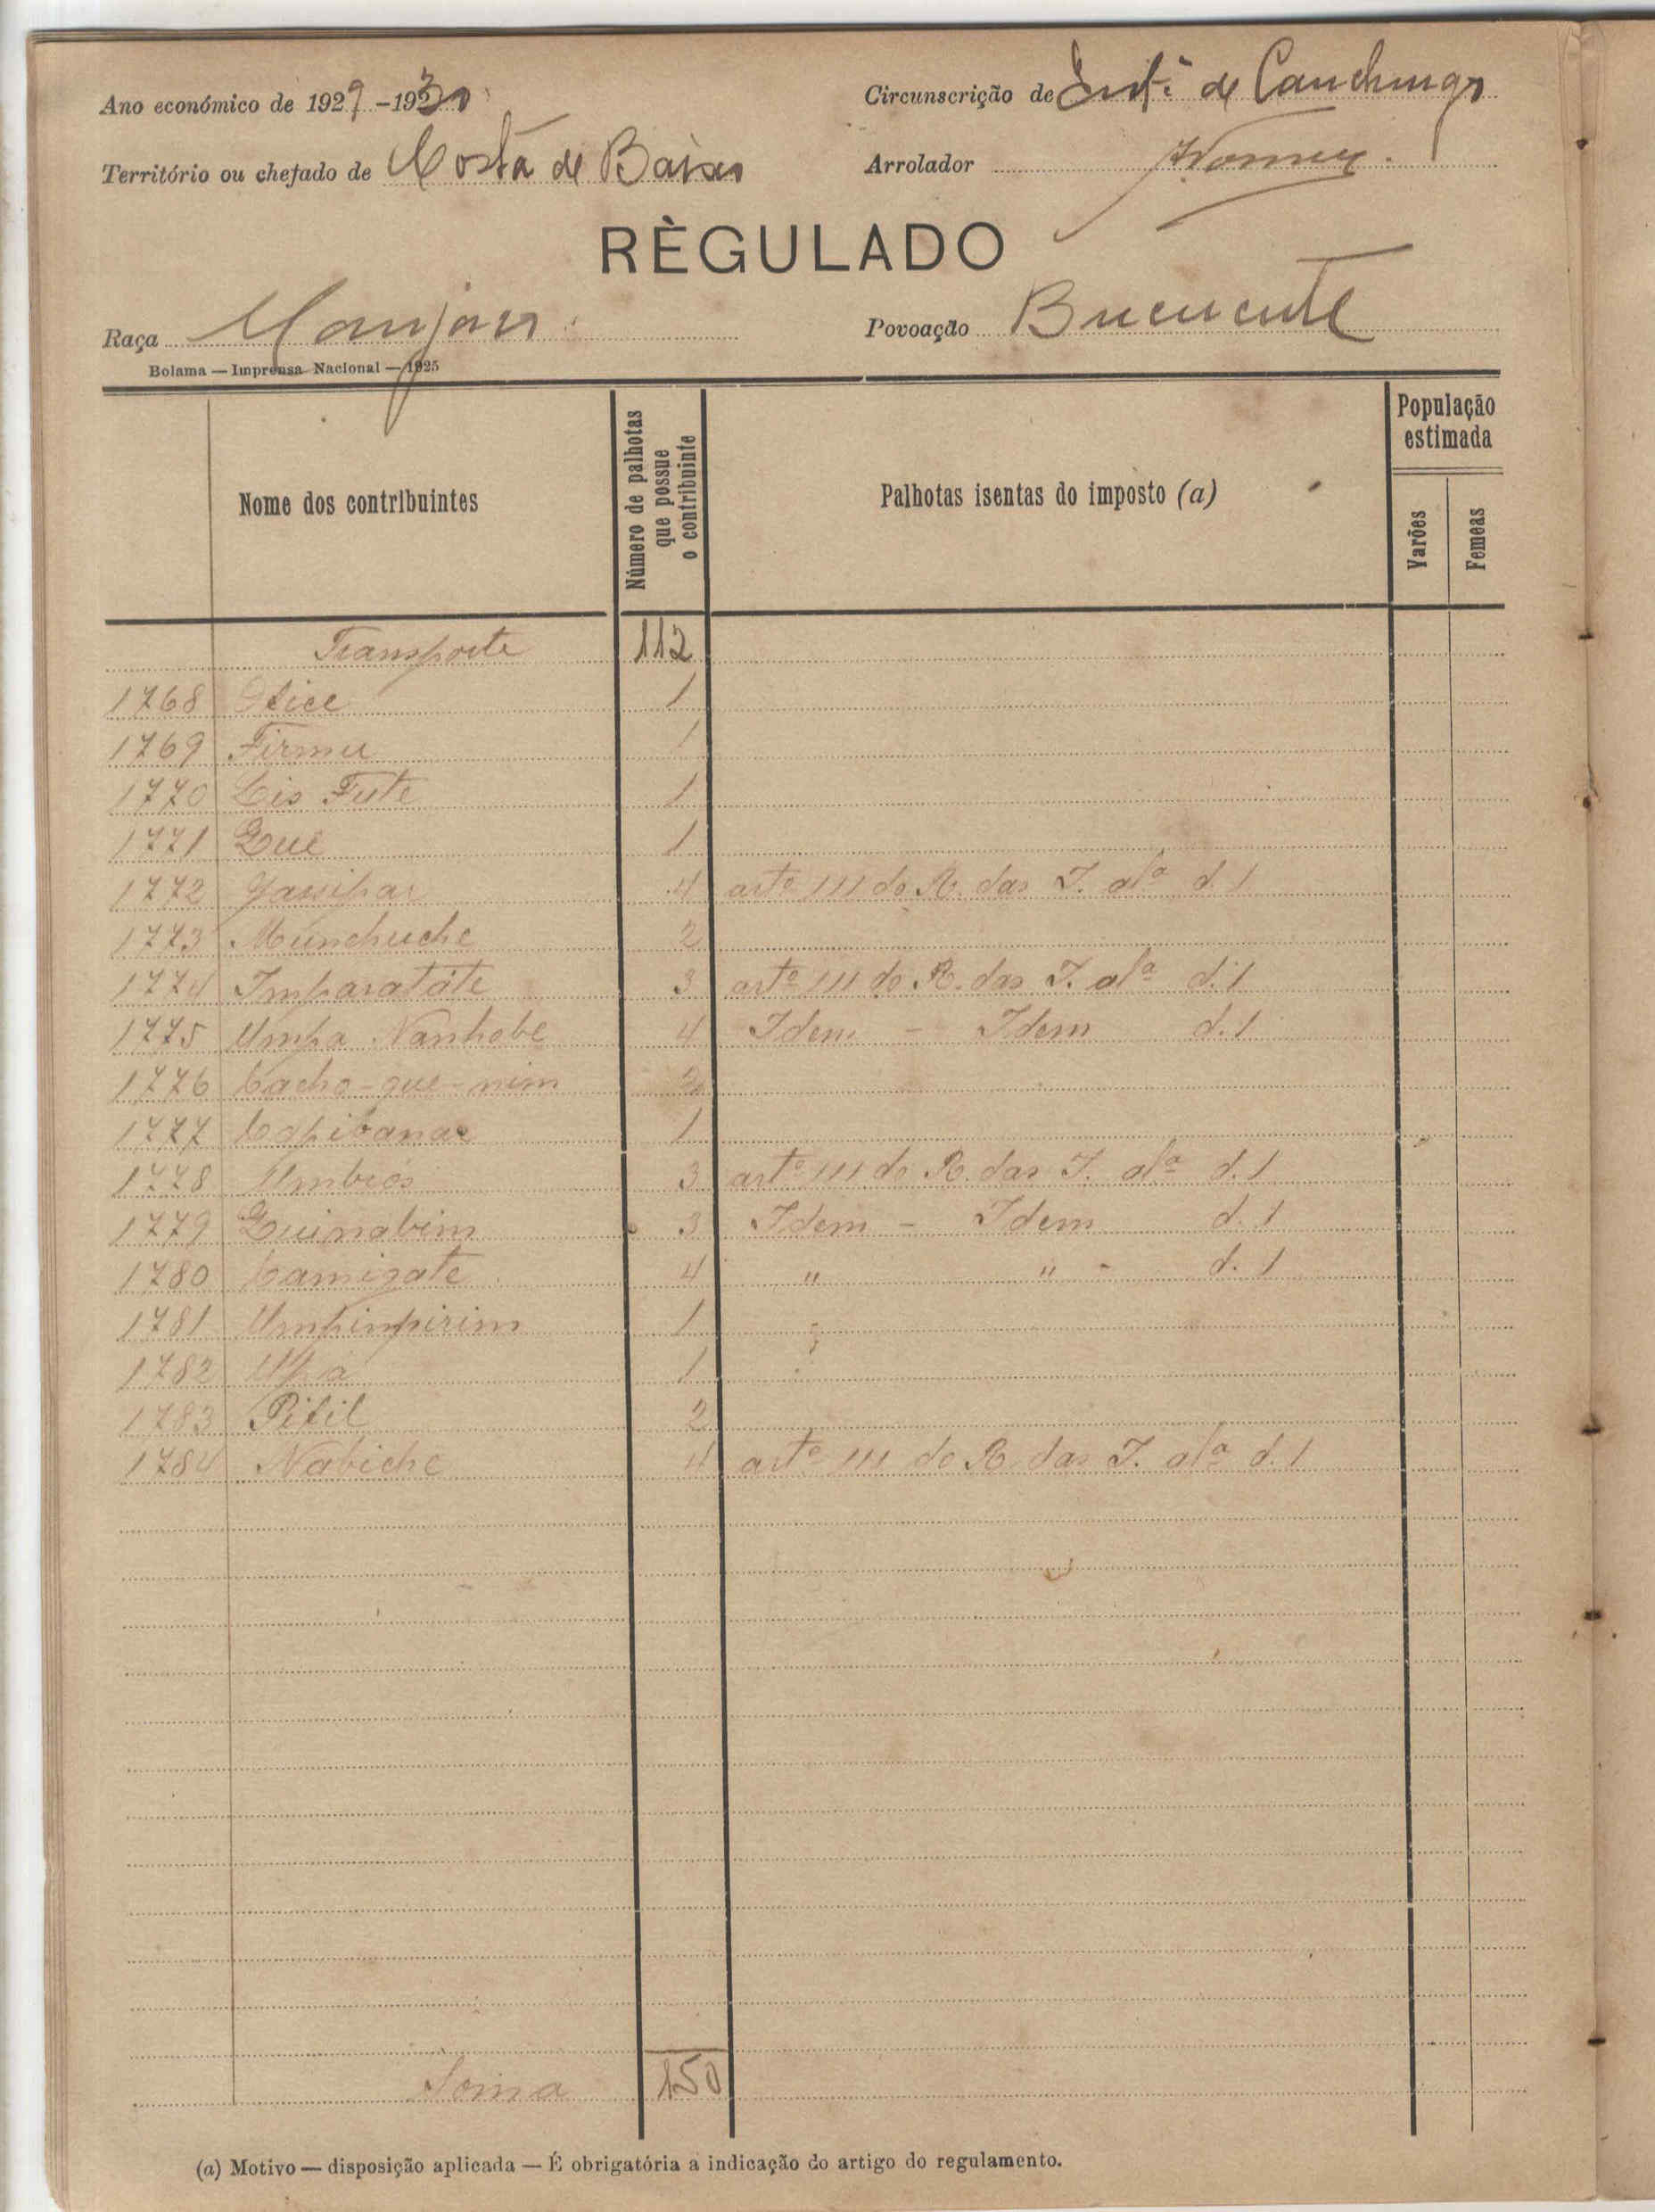 Ano económico de 1929-1930 Circunscrição de de Canchungo
Território ou chefado de Costa de Baixo Arrolador
RÈGULADO
Raça Manjaca Povoação Bucucute
Bolama — Imprensa Nacional — 1925
Nome dos contribuintes
Número de palhotas que possue o contribuinte
Palhotas isentas do imposto (a)
População estimada
Varões
Femeas
Transporte 112
1768 1
1769 Firmu 1
1770 Lis Fute 1
1771 Qué 1
1772 4 artº 111 do R. das I. alª d. 1
1773 Munchuche 2
1774 Imparatáte 3 artº 111 do R. das I. alª d. 1
1775 Umpa Nanhobe 4 Idem - Idem d. 1
1776 Cacho-que-nim 2
1777 Capibanar 1
1778 3 artº 111 do R. das I. alª d. 1
1779 Quinabim 3 Idem - Idem d. 1
1780 Camigate 4 " " - d. 1
1781 Umpimpirim 1
1782 Upa 1
1783 Pifil 2
1784 Nabiche 4 artº 111 do R. das I. alª d. 1
Soma 150
(a) Motivo — disposição aplicada — É obrigatória a indicação do artigo do regulamento.